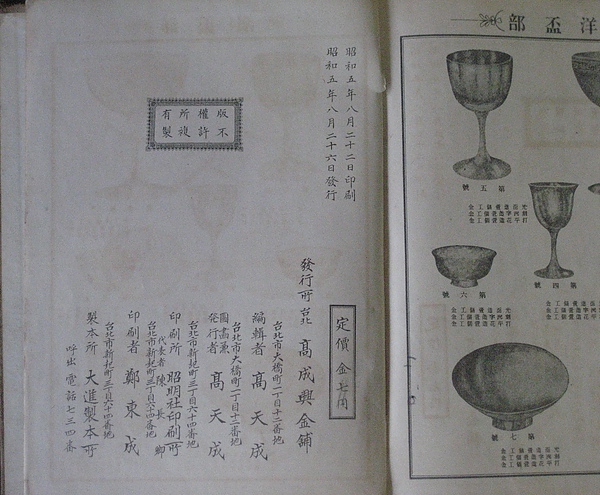 昭和五年八月二十二日印刷
昭和五年八月二十六日發行
版權所有
不許複製
定價 金七円
發行所 台北 高成興金舖
台北市大橋町一丁目十二番地
編輯者 高天成
台北市大橋町一丁目十二番地
圖畵兼發行者 高天成
台北市新起町三丁目六十四番地
印刷所 昭明社印刷所
代表者 陳長卿
台北市新起町三丁目六十四番地
印刷者 鄭東成
台北市新起町三丁目六十四番地
製本所 大進製本所
呼出電話七三四番
洋盃部
第五號
第四號
第六號
第七號